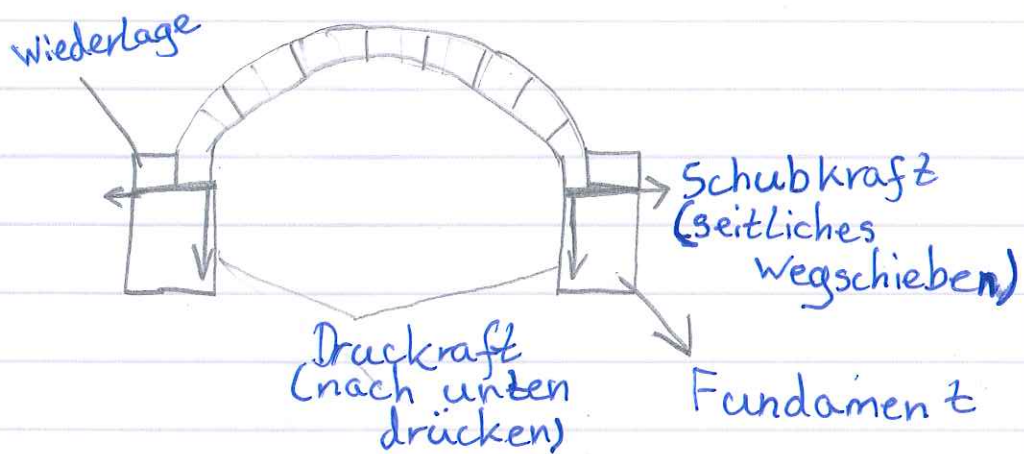 Wiederlage
Schubkraft
(seitliches
wegschieben)
Druckraft
(nach unten
drücken)
Fundament